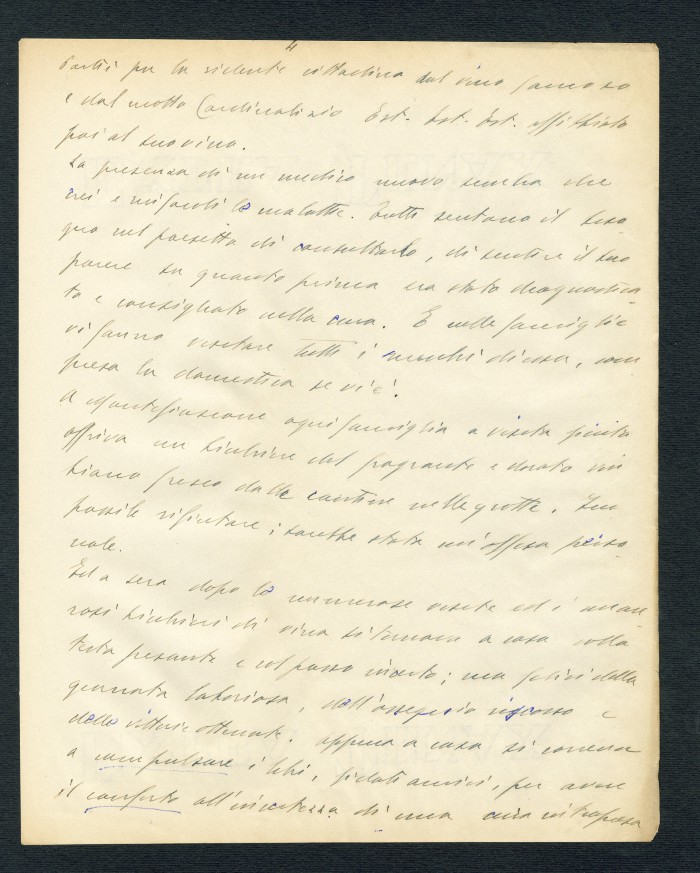 4
Partii per la ridente cittadina dal vino famoso
e dal motto Cardinalizio Est. Est. Est. affibbiato
poi al suo vino.
La presenza di un medico nuovo sembra che
crei e rinfocoli le malattie. Tutti sentono il biso
gno nel paesetto di consultarlo, di sentire il suo
parere su quanto prima era stato diagnostica
to e consigliato nella cura. E nelle famiglie
vi fanno visitare tutti i membri di casa, com
presa la domestica se vi è.
A Montefiascone ogni famiglia a visita finita
offriva un bicchiere del fragrante e dorato vin
biano fresco dalle cantine nelle grotte. Im
possibile rifiutare; sarebbe stata un'offesa perso
nale.
Ed a sera dopo le numerose visite ed i nume
rosi bicchieri di vino si tornava a casa colla
testa pesante e col passo incerto; ma felici della
giornata laboriosa, dell'ossequio riscosso e
delle vittorie ottenute. Appena a casa si correva
a compulsare i libri, fidati amici, per avere
il conforto all'incertezza di una cura intrapresa